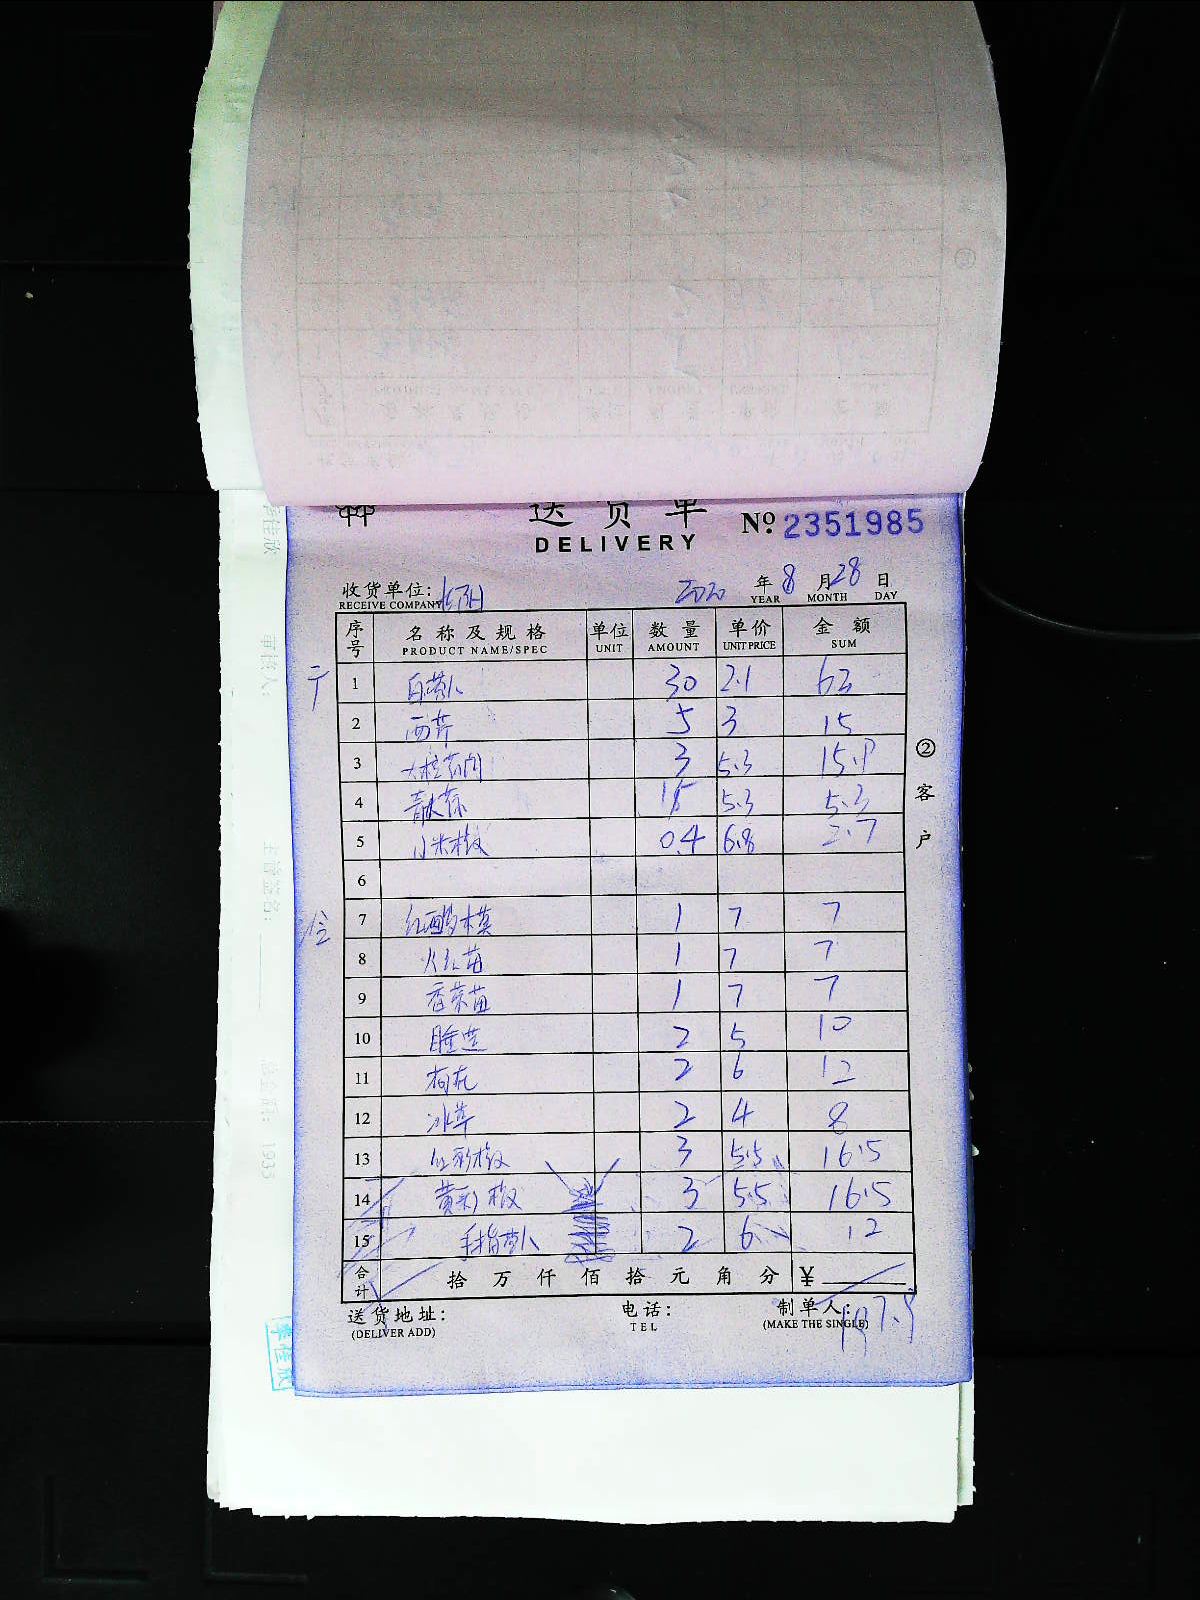 送货单
DELIVERY
No. 2351985
收货单位:
RECEIVE COMPANY
2020 年 8 月 28 日
YEAR MONTH DAY
序号 名称及规格 单位 数量 单价 金额
PRODUCT NAME/SPEC UNIT AMOUNT UNIT PRICE SUM
1 白萝卜 30 2.1 63
2 西芹 5 3 15
3 3 5.3 15.9
4 5.3 5.3
5 小米椒 0.4 6.8 2.7
6
7 红酸模 1 7 7
8 1 7 7
9 香菜苗 1 7 7
10 睡莲 2 5 10
11 2 6 12
12 冰草 2 4 8
13 红彩椒 3 5.5 16.5
14 黄彩椒 3 5.5 16.5
15 手指萝卜 2 6 12
合计 拾 万 仟 佰 拾 元 角 分 ¥
197.9
送货地址: 电话: 制单人:
(DELIVER ADD) TEL (MAKE THE SINGLE)
② 客户
李佳欣